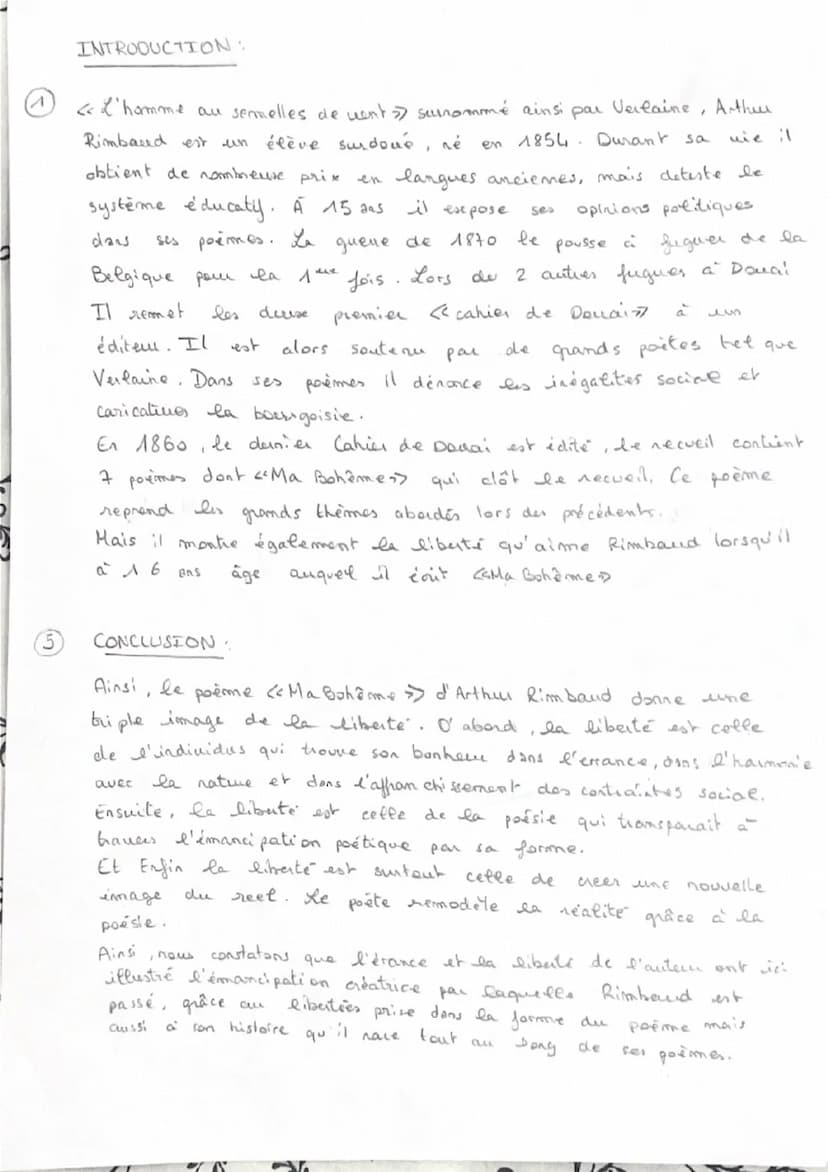 INTRODUCTION :
1 << L'homme au semelles de vent >> surnommé ainsi par Verlaine, Arthur
Rimbaud est un élève surdoué, né en 1854. Durant sa vie il
obtient de nombreuse prix en langues anciennes, mais deteste le
système éducatif. À 15 ans il expose ses opinions politiques
dans ses poèmes. La guerre de 1870 le pousse à fuguer de la
Belgique pour la 1ère fois. Lors de 2 autres fugues à Douai
Il remet les deuxe premier << cahier de Douai >> à un
éditeur. Il est alors soutenu par de grands poètes tel que
Verlaine. Dans ses poèmes il dénonce les inégalités social et
caricatures la bourgoisie.
En 1860, le dernier Cahier de Douai est édité, le recueil contient
7 poèmes dont << Ma Bohème >> qui clôt le recueil. Ce poème
reprend les grands thèmes abordés lors des précédents.
Mais il montre également la liberté qu'aime Rimbaud lorsqu'il
à 16 ans âge auquel il écrit << Ma Bohème >>
5 CONCLUSION :
Ainsi, le poème << Ma Bohème >> d'Arthur Rimbaud donne une
triple image de la liberté. D'abord, la liberté est celle
de l'individus qui trouve son bonheur dans l'errance, dans l'harmonie
avec la nature et dans l'affranchissement des contraintes social.
Ensuite, la liberté est celle de la poésie qui transparait à
travers l'émancipation poétique par sa forme.
Et Enfin la liberté est surtout celle de creer une nouvelle
image du reel. Le poète remodèle la réalité grâce à la
poésie.
Ainsi, nous constatons que l'érance et la liberté de l'auteur ont ici
illustré l'émancipation créatrice par laquelle Rimbaud est
passé, grâce au libertées prise dans la forme du poème mais
aussi à son histoire qu'il nare tout au long de ses poèmes.